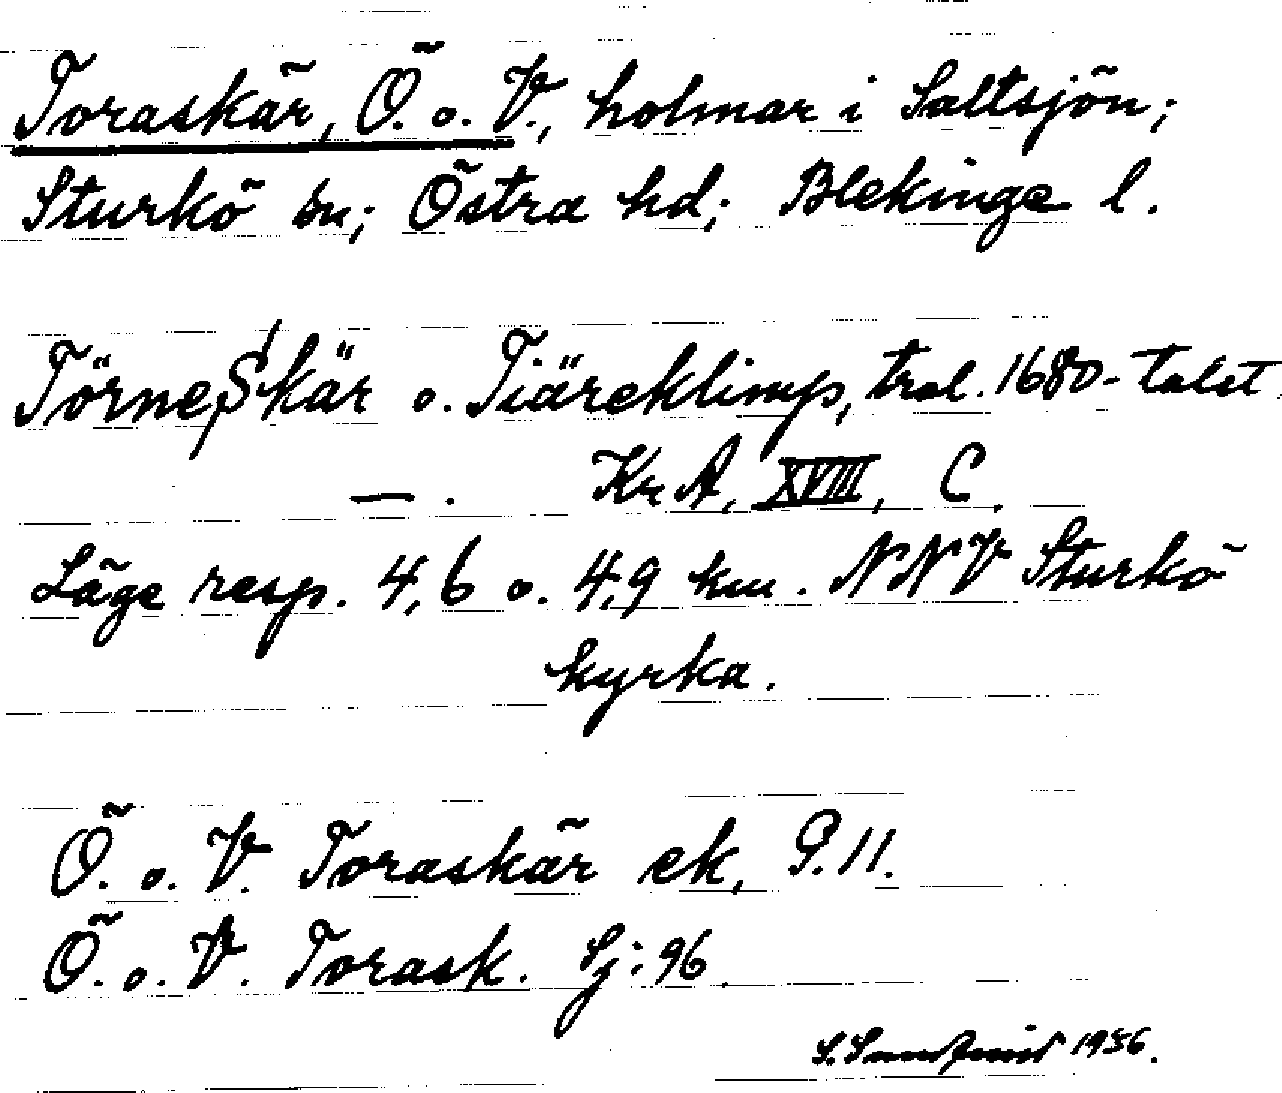 Toraskär, Ö. o. V., holmar i Saltsjön;
Sturkö sn; Östra hd; Blekinge l.
Törneskär o. Tiäreklimp, trol. 1680-talet.
— . KrA, XVIII, C.
Läge resp. 4,6 o. 4,9 km. NNV Sturkö
kyrka.
Ö. o. V. Toraskär ek, P. 11.
Ö. o. V. Torask. Sj: 96.
S. 1936.